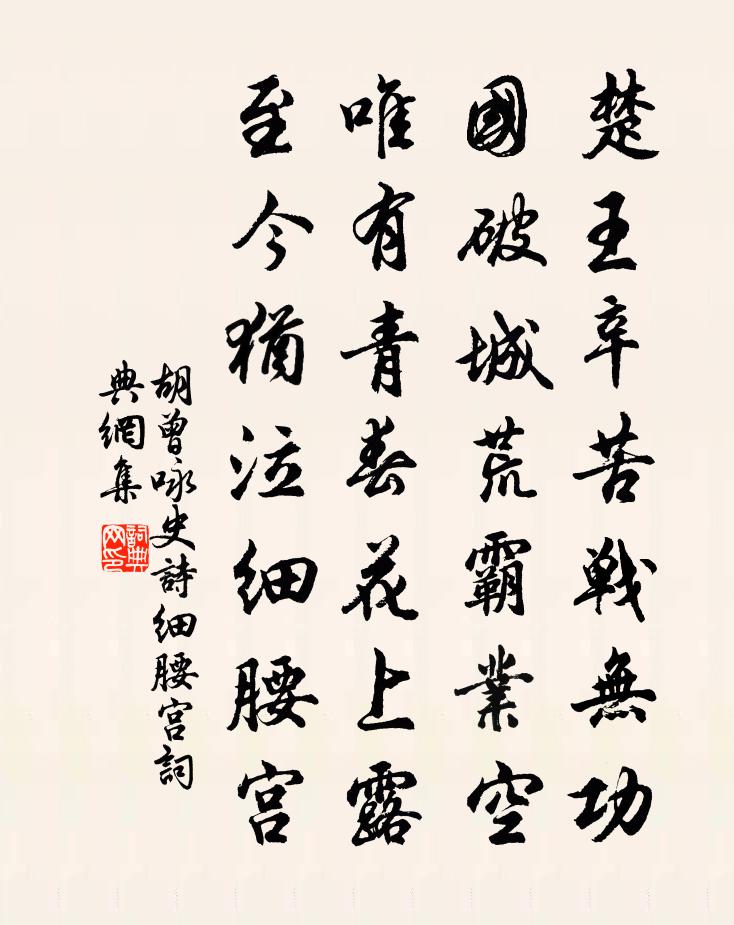 楚王辛苦戰無功
國破城荒霸業空
唯有青春花上露
至今猶泣細腰宮
胡曾咏史詩細腰宮詞
典網集
詞典
网印